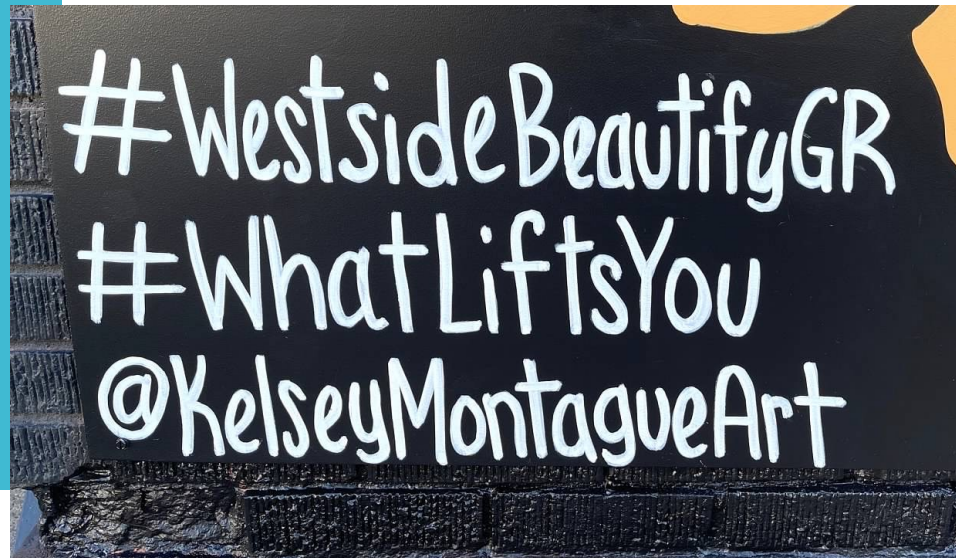 #WestsideBeautifyGR
#WhatLiftsYou
@KelseyMontagueArt